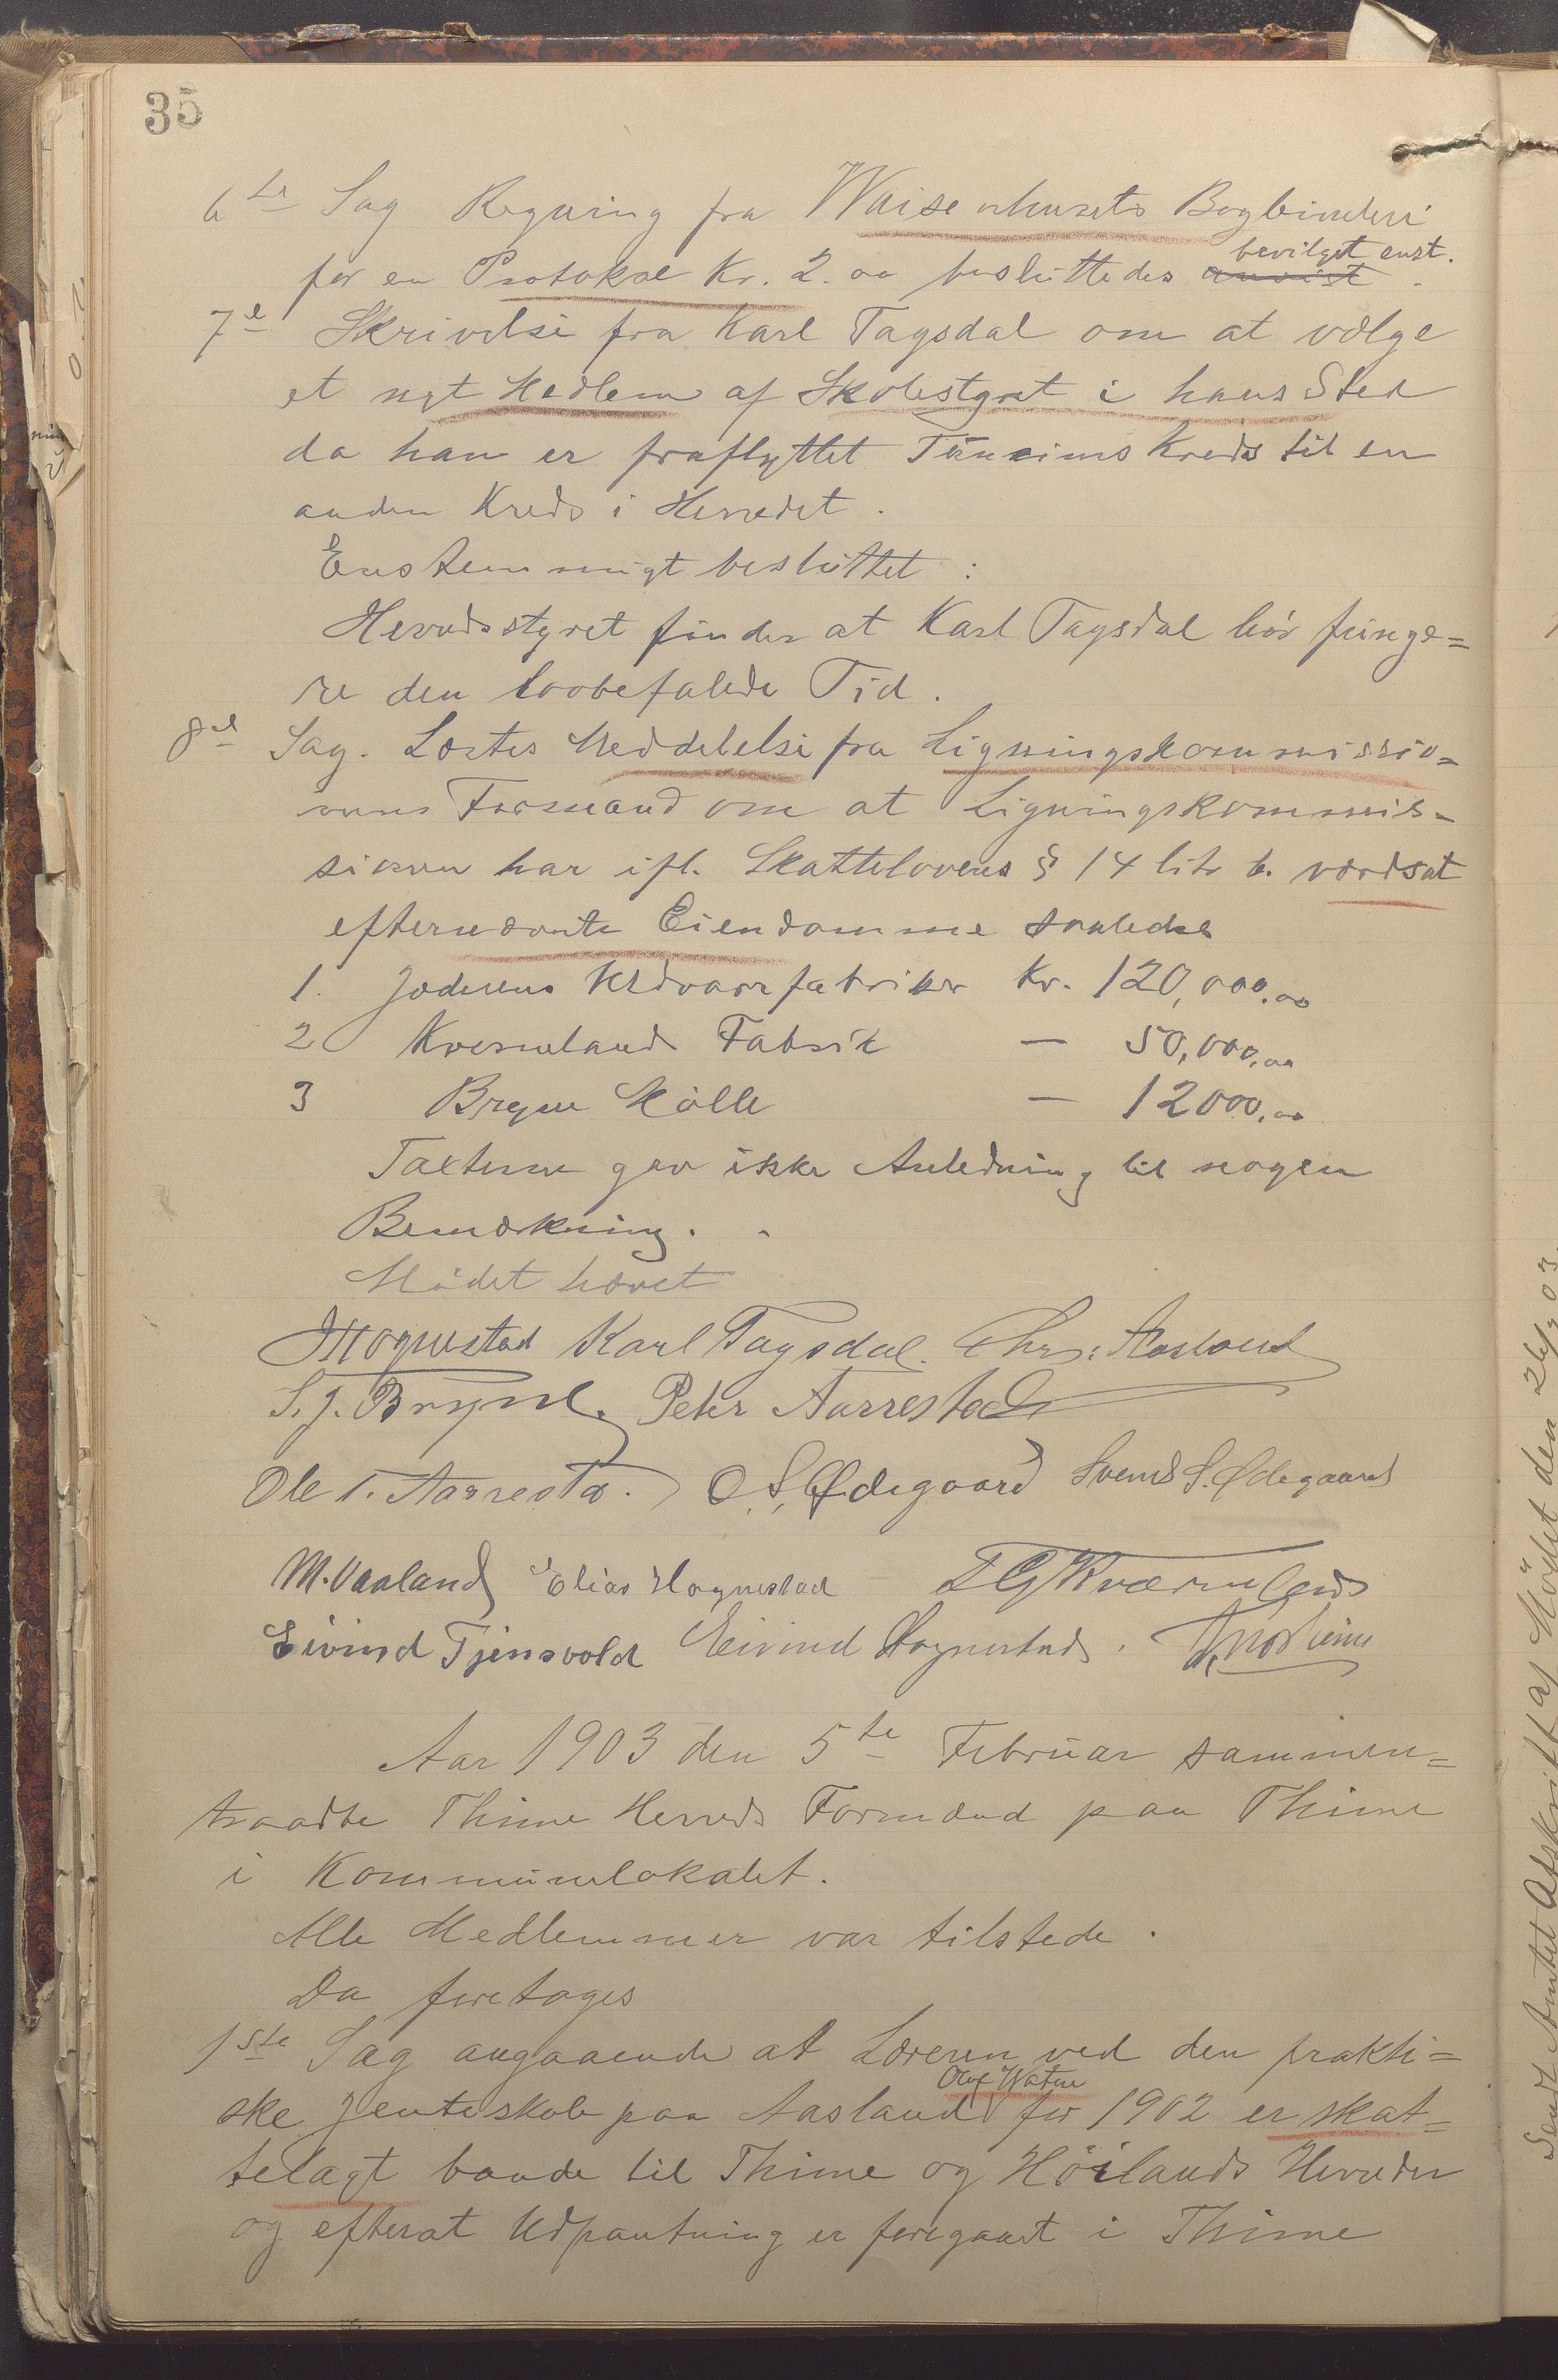 35
6te Sag Regning fra Waisenhusets Bogbinderi
for en Protokol Kr. 2.00 besluttedes anvist bevilget enst.
7de Skrivelse fra Karl Tagsdal om at vælge
et nyt Medlem af Skolestyret i hans Sted
da han er fraflyttet Kreds til en
anden Kreds i Herredet.
Enstemmigt besluttet:
Herredsstyret finder at Karl Tagsdal bör funge=
re den lovbefalede Tid.
8de Sag. Læstes Meddelelse fra Ligningskommissio=
nens Formand om at Ligningskommis-
sionen har ifl. Skattelovens § 14 litr b. værdsat
efternævnte Eiendomme saaledes
1. Jæderens Uldvarefabriker Kr. 120,000.00
2 Kvernelands Fabrik — 50,000.00
3 Bryne Mölle — 12000.00
Taxterne gav ikke Anledning til nogen
Bemærkning.
Mödet hævet
Hognestad Karl Tagsdal. Chr. Aasland
S. J. Bryne. Peter Aarrestad
Ole T. Aarresta. O. S. Ødegaard Svend S. Ødegaard
M. Vaaland Elias Hognestad Kværneland
Eivind Tjensvold Eivind Hognestad.
Aar 1903 den 5te Februar sammen=
traadte Thime Herreds Formænd paa Thime
i Kommunelokalet.
Alle Medlemmer var tilstede.
Da foretoges
1ste Sag angaaende at Læreren ved den prakti=
Olaf Watne
ske Jenteskole paa Aasland for 1902 er skat=
telagt baade til Thime og Höilands Herreder
og efterat Udpantning er foregaaet i Thime
Sendt Amtet Afskrift af Mödet den 26/2 03.